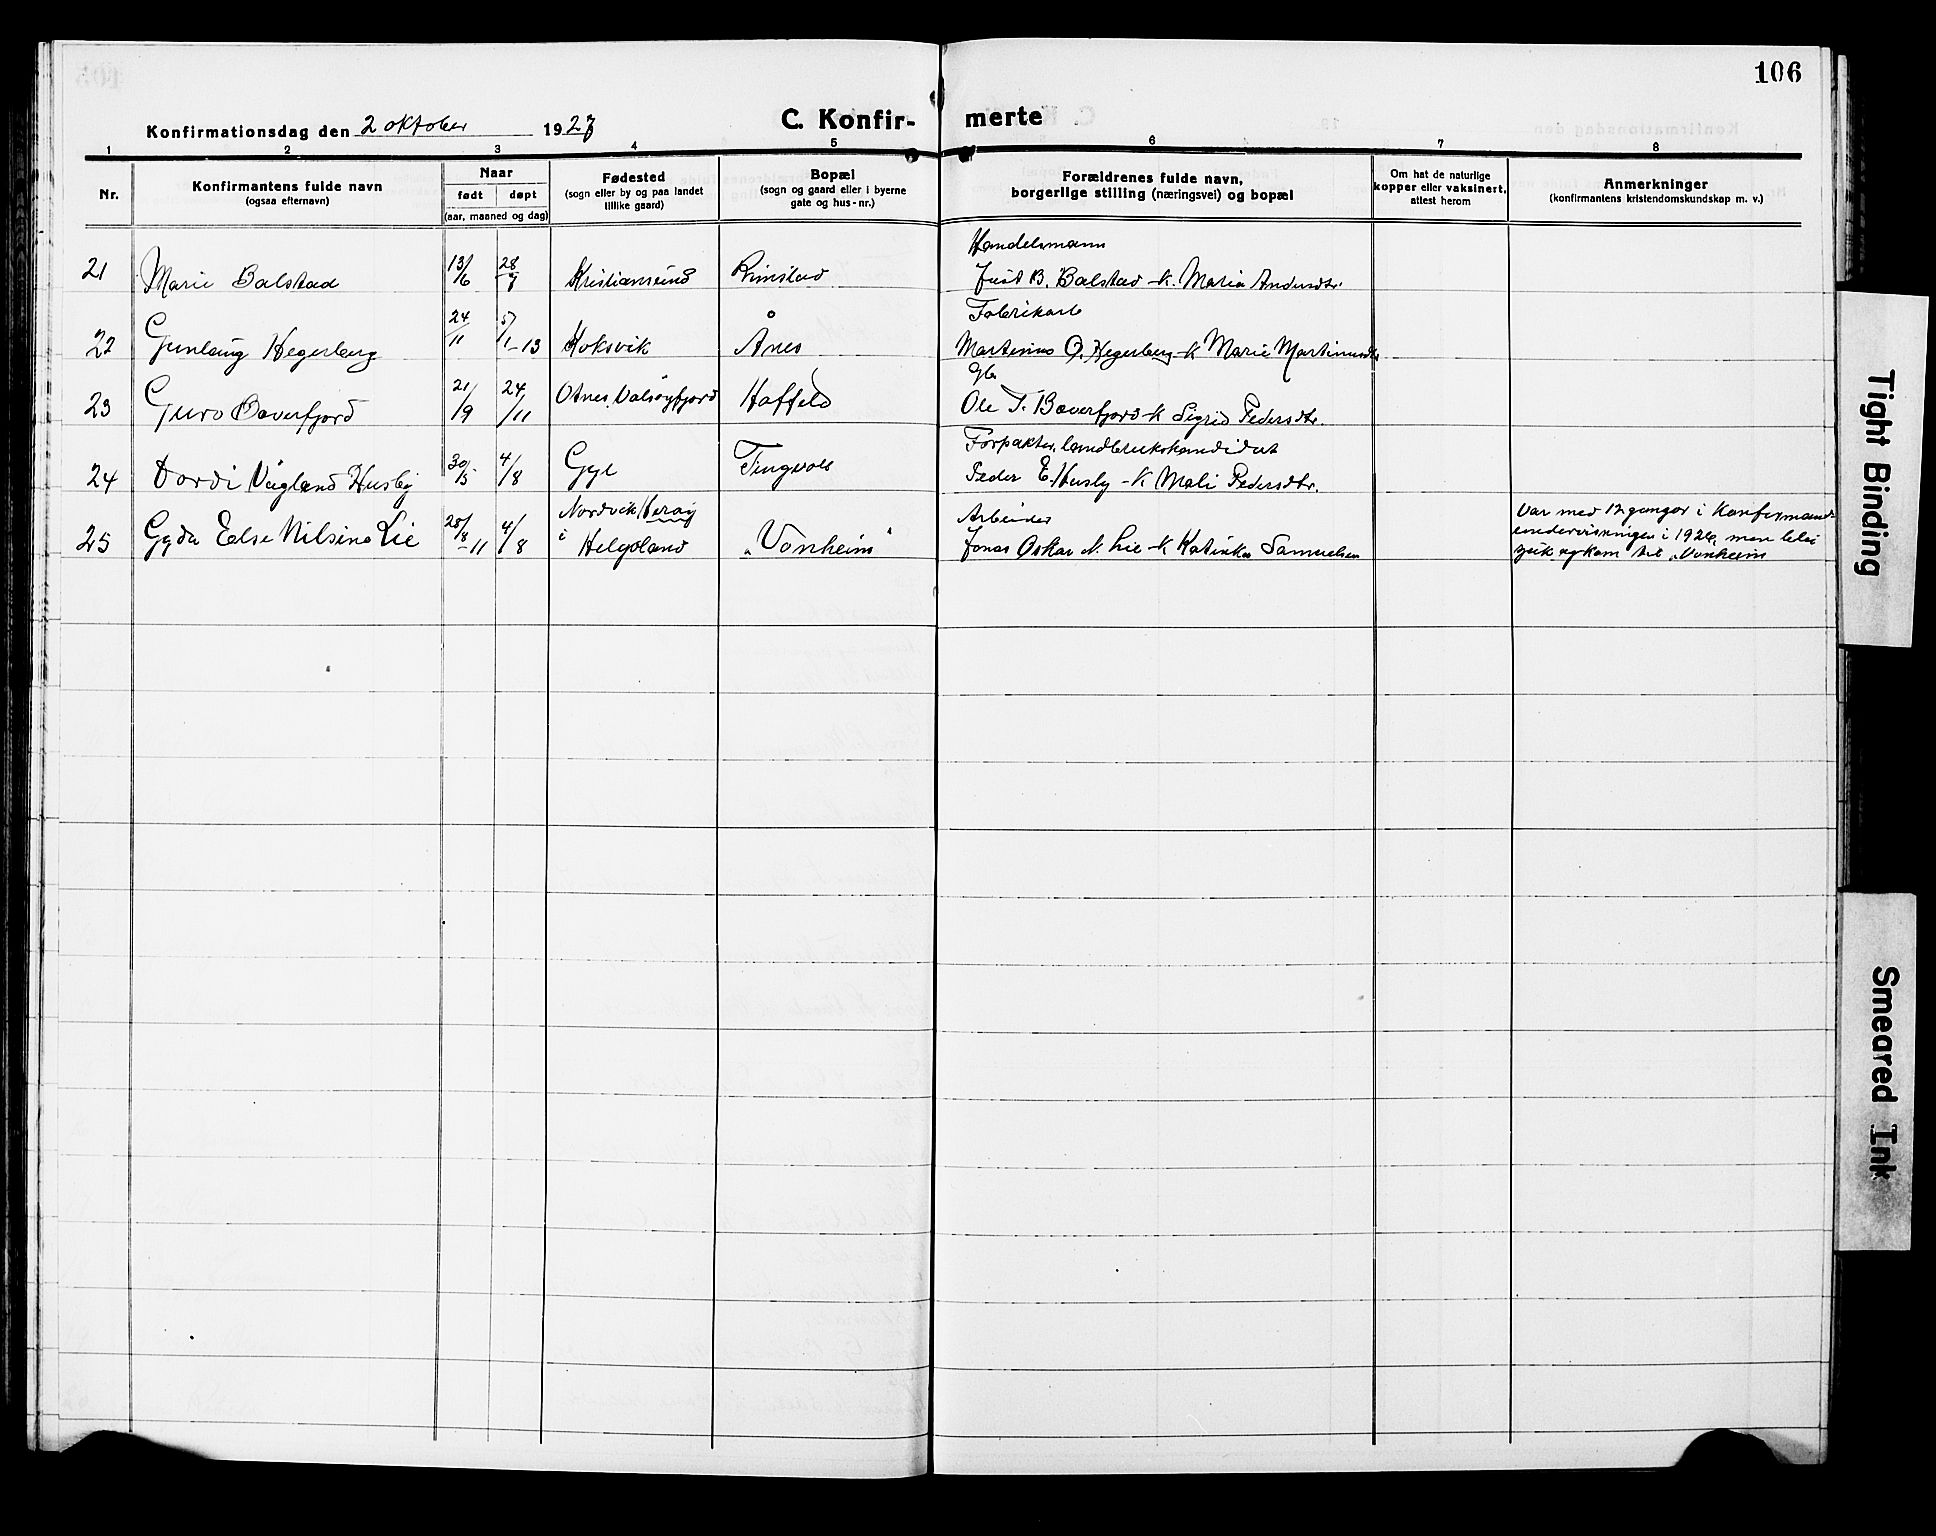 106
Konfirmationsdag den 2 oktober 1927
C. Konfir- merte
1 2 3 4 5 6 7 8
Nr.
Konfirmantens fulde navn
(ogsaa efternavn)
Naar
født døpt
(aar, maaned og dag)
Fødested
(sogn eller by og paa landet
tillike gaard)
Bopæl
(sogn og gaard eller i byerne
gate og hus-nr.)
Forældrenes fulde navn,
borgerlige stilling (næringsvei) og bopæl
Om hat de naturlige
kopper eller vaksinert,
attest herom
Anmerkninger
(konfirmantens kristendomskundskap m. v.)
Handelsmann
21 Marie Balstad 13/6 28/7 Kristiansund Rimstad Just B. Balstad - K. Maria Andersdtr.
Fabrikarb
22 Gunlaug Hegerberg 24/11 5/1-13 Koksvik Ånes Martinus O. Hegerberg - K Marie Martinusdtr
Gb
23 Guro Bæverfjord 21/9 24/11 Otnes, Valsøyfjord Haffeld Ole T. Bæverfjord - K Sigrid Pedersdtr.
Forpakter, landbrukskandidat
24 Dordi Vågland Husby 30/5 4/8 Gyl Tingvoll Peder E. Husby - K Mali Pedersdtr.
Nordvik, Herøy Arbeider Var med 12 gangar i Konfirmand-
25 Gyda Else Nilsine Lie 28/8-11 4/8 i Helgoland "Vonheim" Jonas Oskar N. Lie - K Katinka Samuelsen undervisningen i 1926, men blei
sjuk og kom til "Vonheim
Tight Binding
Smeared Ink